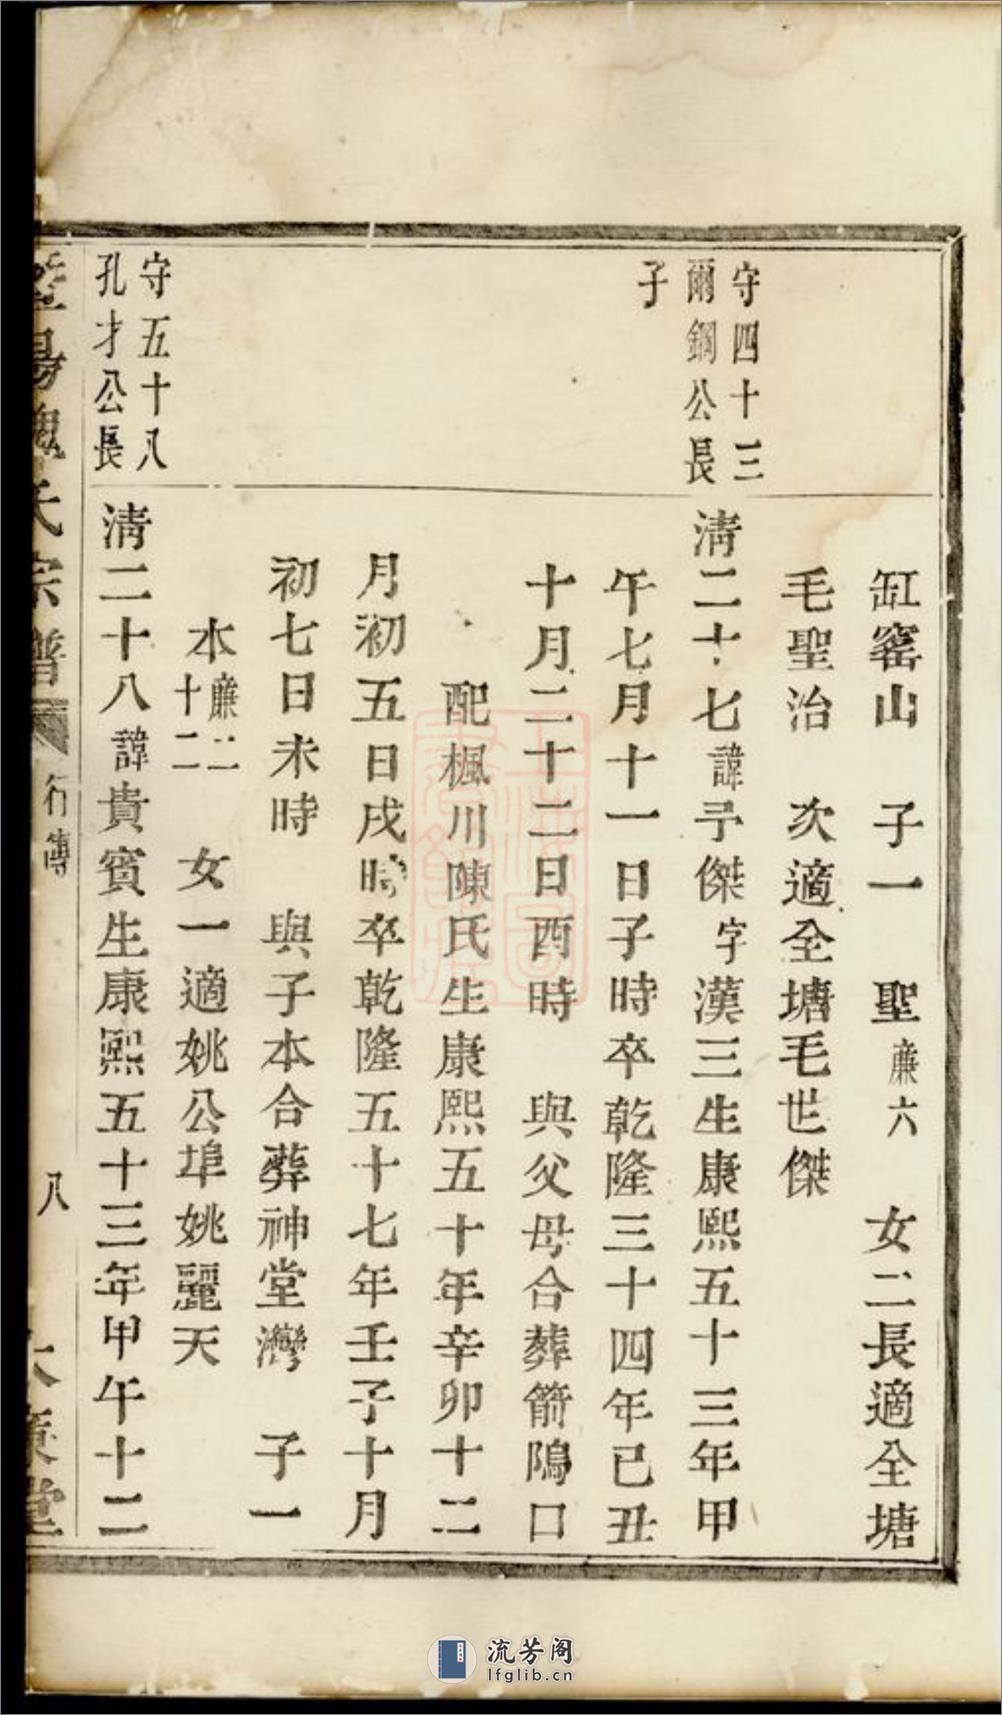 缸窰山　子一　聖廉六　女二長適全塘
毛聖治　次適全塘毛世傑
守四十三
爾鋼公長
子
清二十七諱予傑字漢三生康熙五十三年甲
午七月十一日子時卒乾隆三十四年己丑
十月二十二日酉時　與父母合葬箭隖口
配楓川陳氏生康熙五十年辛卯十二
月初五日戌時卒乾隆五十七年壬子十月
初七日未時　與子本合葬神堂灣　子一
本廉二十二　女一適姚公埠姚麗天
守五十八
孔才公長
清二十八諱貴賓生康熙五十三年甲午十二
暨陽魏氏宗譜
行傳
八
流芳阁
lfglib.cn